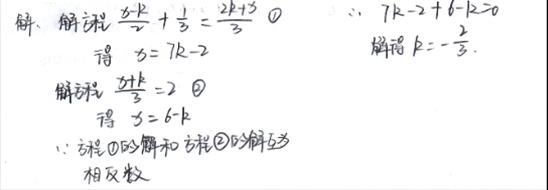 解、解方程 (x-k)/2 + 1/3 = (2k+x)/3 ①
得 x=7k-2
解方程 (x+k)/3 = 2 ②
得 x=6-k
∵方程①的解和方程②的解互为
相反数
∴ 7k-2+6-k=0
解得 k=-2/3.